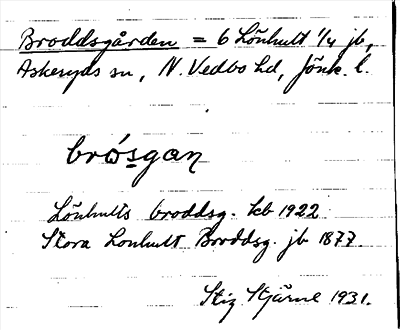 Broddsgården = 6 Lönhult 1/4 jb,
Askeryds sn, N. Vedbo hd, Jönk. l.
brósgan
Lönhults broddsg. kb 1922
Stora Lonhult Broddsg. jb 1877.
Stig Stjärne 1931.